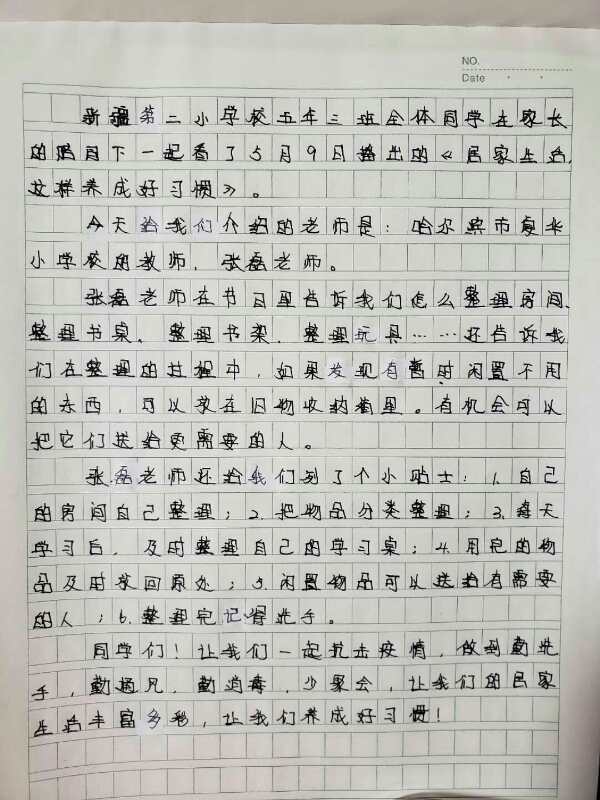 NO.
Date
新疆第二小学校五年三班全体同学在家长
的陪同下一起看了5月9日播出的《居家生活,
这样养成好习惯》。
今天给我们介绍的老师是：哈尔滨市复华
小学校的教师，张磊老师。
张磊老师在节目里告诉我们怎么整理房间、
整理书桌、整理书架、整理玩具……还告诉我
们在整理的过程中，如果发现有暂时闲置不用
的东西，可以放在旧物收纳箱里。有机会可以
把它们送给更需要的人。
张磊老师还给我们列了个小贴士：1.自己
的房间自己整理；2.把物品分类整理；3.每天
学习后，及时整理自己的学习桌；4.用完的物
品及时放回原处；5.闲置物品可以送给有需要
的人；6.整理完记得洗手。
同学们！让我们一起抗击疫情，做到勤洗
手，勤通风，勤消毒，少聚会，让我们的居家
生活丰富多彩，让我们养成好习惯！